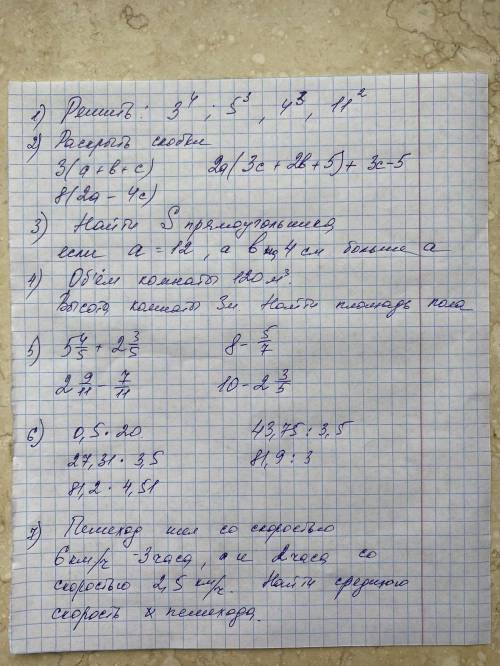 1) Решить: 3⁴ ; 5³ , 4³ , 11²
2) Раскрыть скобки
3(а+в+с) 2а(3с+2в+5)+3с-5
8(2а-4с)
3) Найти S прямоугольника
если а=12, а в на 4 см больше а
4) Объём комнаты 120м³.
Высота комнаты 3м Найти площадь пола
5) 5 4/5 + 2 3/5 8 - 5/7
2 9/11 - 7/11 10 - 2 3/5
6) 0,5 · 20 43,75 : 3,5
27,31 · 3,5 81,9 : 3
81,2 · 4,51
7) Пешеход шел со скоростью
6 км/ч - 3 часа, и 2 часа со
скоростью 2,5 км/ч. Найти среднюю
скорость пешехода.